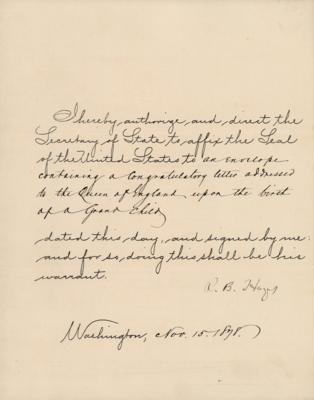 I hereby authorize and direct the
Secretary of State to affix the Seal
of the United States to an envelope
containing a Congratulatory letter addressed
to the Queen of England upon the birth
of a Grand Child
dated this day, and signed by me:
and for so, doing this shall be his
warrant.
R. B. Hayes
Washington, Nov. 15. 1878.